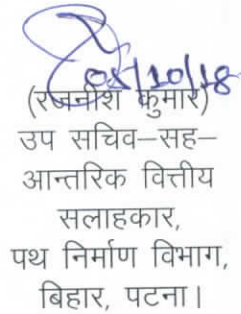 08/10/18
(रजनीश कुमार)
उप सचिव–सह–
आन्तरिक वित्तीय
सलाहकार,
पथ निर्माण विभाग,
बिहार, पटना।